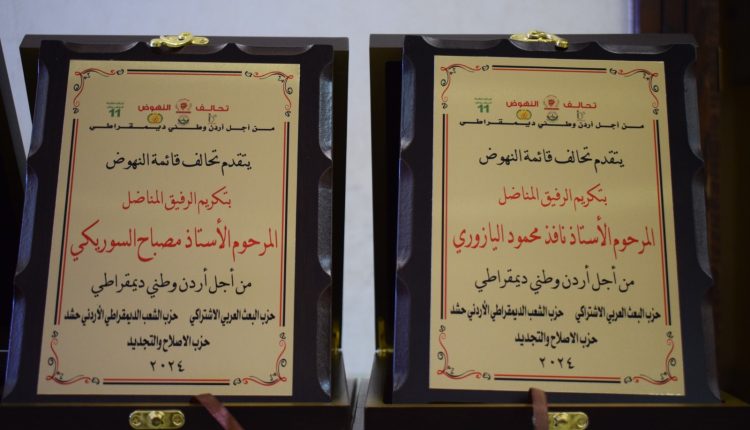 تحالف النهوض
11
من أجل أردن وطني ديمقراطي
يتقدم تحالف قائمة النهوض
بتكريم الرفيق المناضل
المرحوم الأستاذ مصباح السوريكي
من أجل أردن وطني ديمقراطي
حزب البعث العربي الاشتراكي حزب الشعب الديمقراطي الأردني حشد
حزب الاصلاح والتجديد
٢٠٢٤
تحالف النهوض
11
من أجل أردن وطني ديمقراطي
يتقدم تحالف قائمة النهوض
بتكريم الرفيق المناضل
المرحوم الأستاذ نافذ محمود اليازوري
من أجل أردن وطني ديمقراطي
حزب البعث العربي الاشتراكي حزب الشعب الديمقراطي الأردني حشد
حزب الاصلاح والتجديد
٢٠٢٤